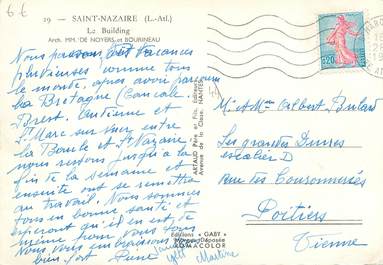 6 €
29 — SAINT-NAZAIRE (L.-Atl.)
Le Building
Arch. MM. DE NOYERS et BOURINEAU
Nous passons des vacances
pluvieuses comme tous
le monde, après avoir parcouru
la Bretagne (Cancale
Brest. etc
St Marc sur mer entre
la Baule et St Nazaire
nous restons jusqu'à la
fin de la semaine et
ensuite ont se remettra
au travail. Nous sommes
tous en bonne santé et
espérons qu'il en est de
même pour vous tous
Nous vous embrassons
bien fort
Yvette Martine
ARTAUD Père et Fils, Éditeurs
Avenue de la Close, NANTES
Editions "GABY"
Marque Déposée
ROMACOLOR
0,20
M. et Mme Albert
Les grandes Dunes
escalier D
rue des Couronneries
Poitiers
Vienne